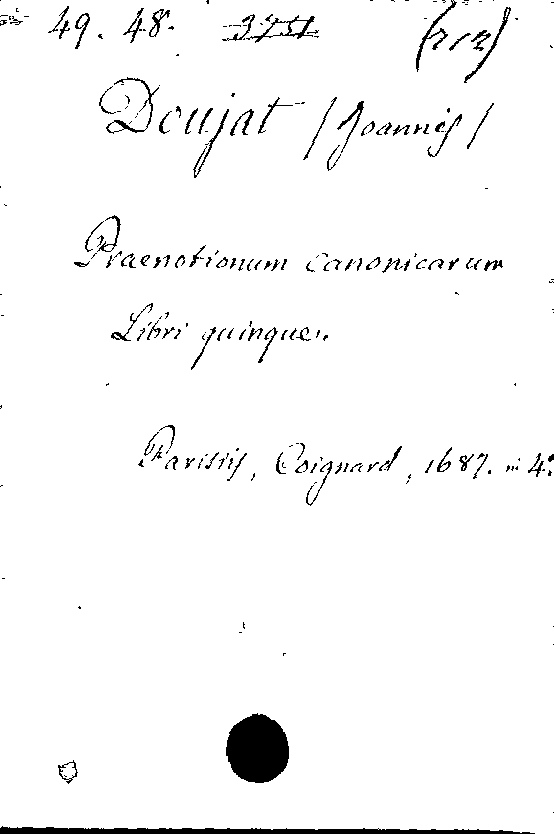 49. 48. 3751 (212)
Doujat / Joannis /
Praenotionum canonicarum
Libri quinque.
Parisiis, Coignard, 1687. in 4º.